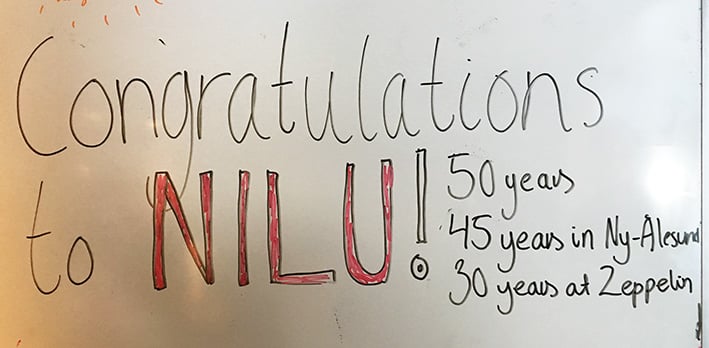 Congratulations
to NILU!
50 years
45 years in Ny-Alesund
30 years at Zeppelin